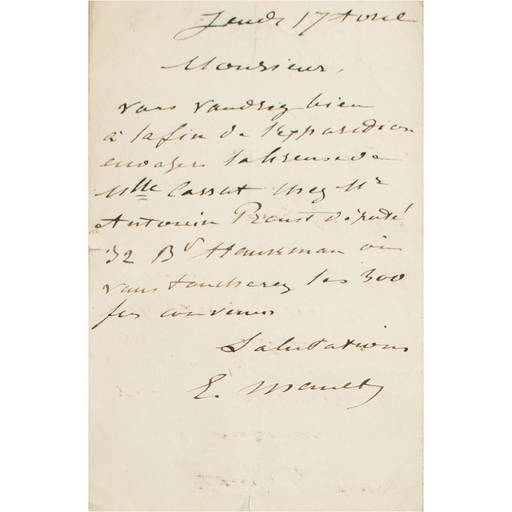 Jeudi 17 Avril
Monsieur,
vous voudrez bien
à la fin de l'exposition
envoyer la liseuse de
Mlle Cassat chez Mr
Antonin Proust député
32 Bd Haussman où
vous toucherez les 300
frs convenus
Salutations
E. Manet